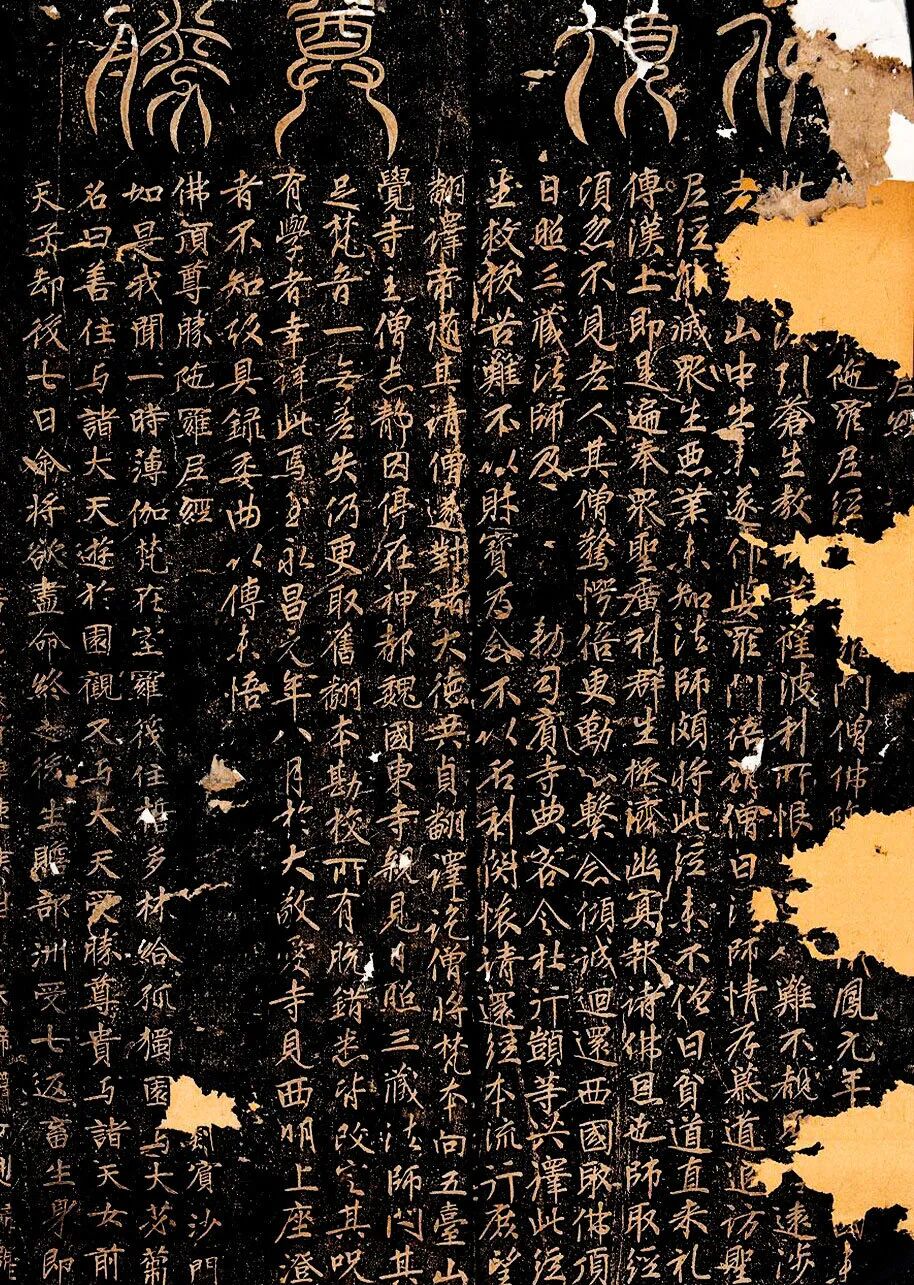 佛頂尊勝
陁羅尼經 門僧佛陁 鳳元年
此 法引蒼生教 薩波利所恨 難不覩 遠涉
山中出来遂作婆羅門語謂僧曰法師情存慕道追訪聖
尼經能滅眾生惡業未知法師頗將此經来不僧曰貧道直来礼
傳漢土即是遍奉眾聖廣利群生拯濟幽冥報諸佛恩也師取經
須臾不見老人其僧驚愕倍更勤心繫念傾誠迴還西國取佛頂
日照三藏法師及 勅司賔寺典客令杜行顗等共譯此經
生救拔苦難不以財寶為念不以名利關懷請還經本流行庶望
翻譯帝随其請僧遂對諸大德共貞翻譯訖僧將梵本向五臺山
覺寺主僧志静因停在神都魏國東寺親見日照三藏法師問其
足梵音一無差失仍更取舊翻本勘校所有脫錯悉皆改定其呪
有學者幸詳此焉至永昌元年八月於大敬愛寺見西明上座澄
者不知故具録委曲以傳未悟
佛頂尊勝陁羅尼經 罽賔沙門
如是我聞一時薄伽梵在室羅筏住誓多林給孤獨園与大苾蒭
名曰善住与諸大天遊於園觀又与大天受勝尊貴与諸天女前
天子却後七日命將欲盡命終之後生贍部洲受七返畜生身即